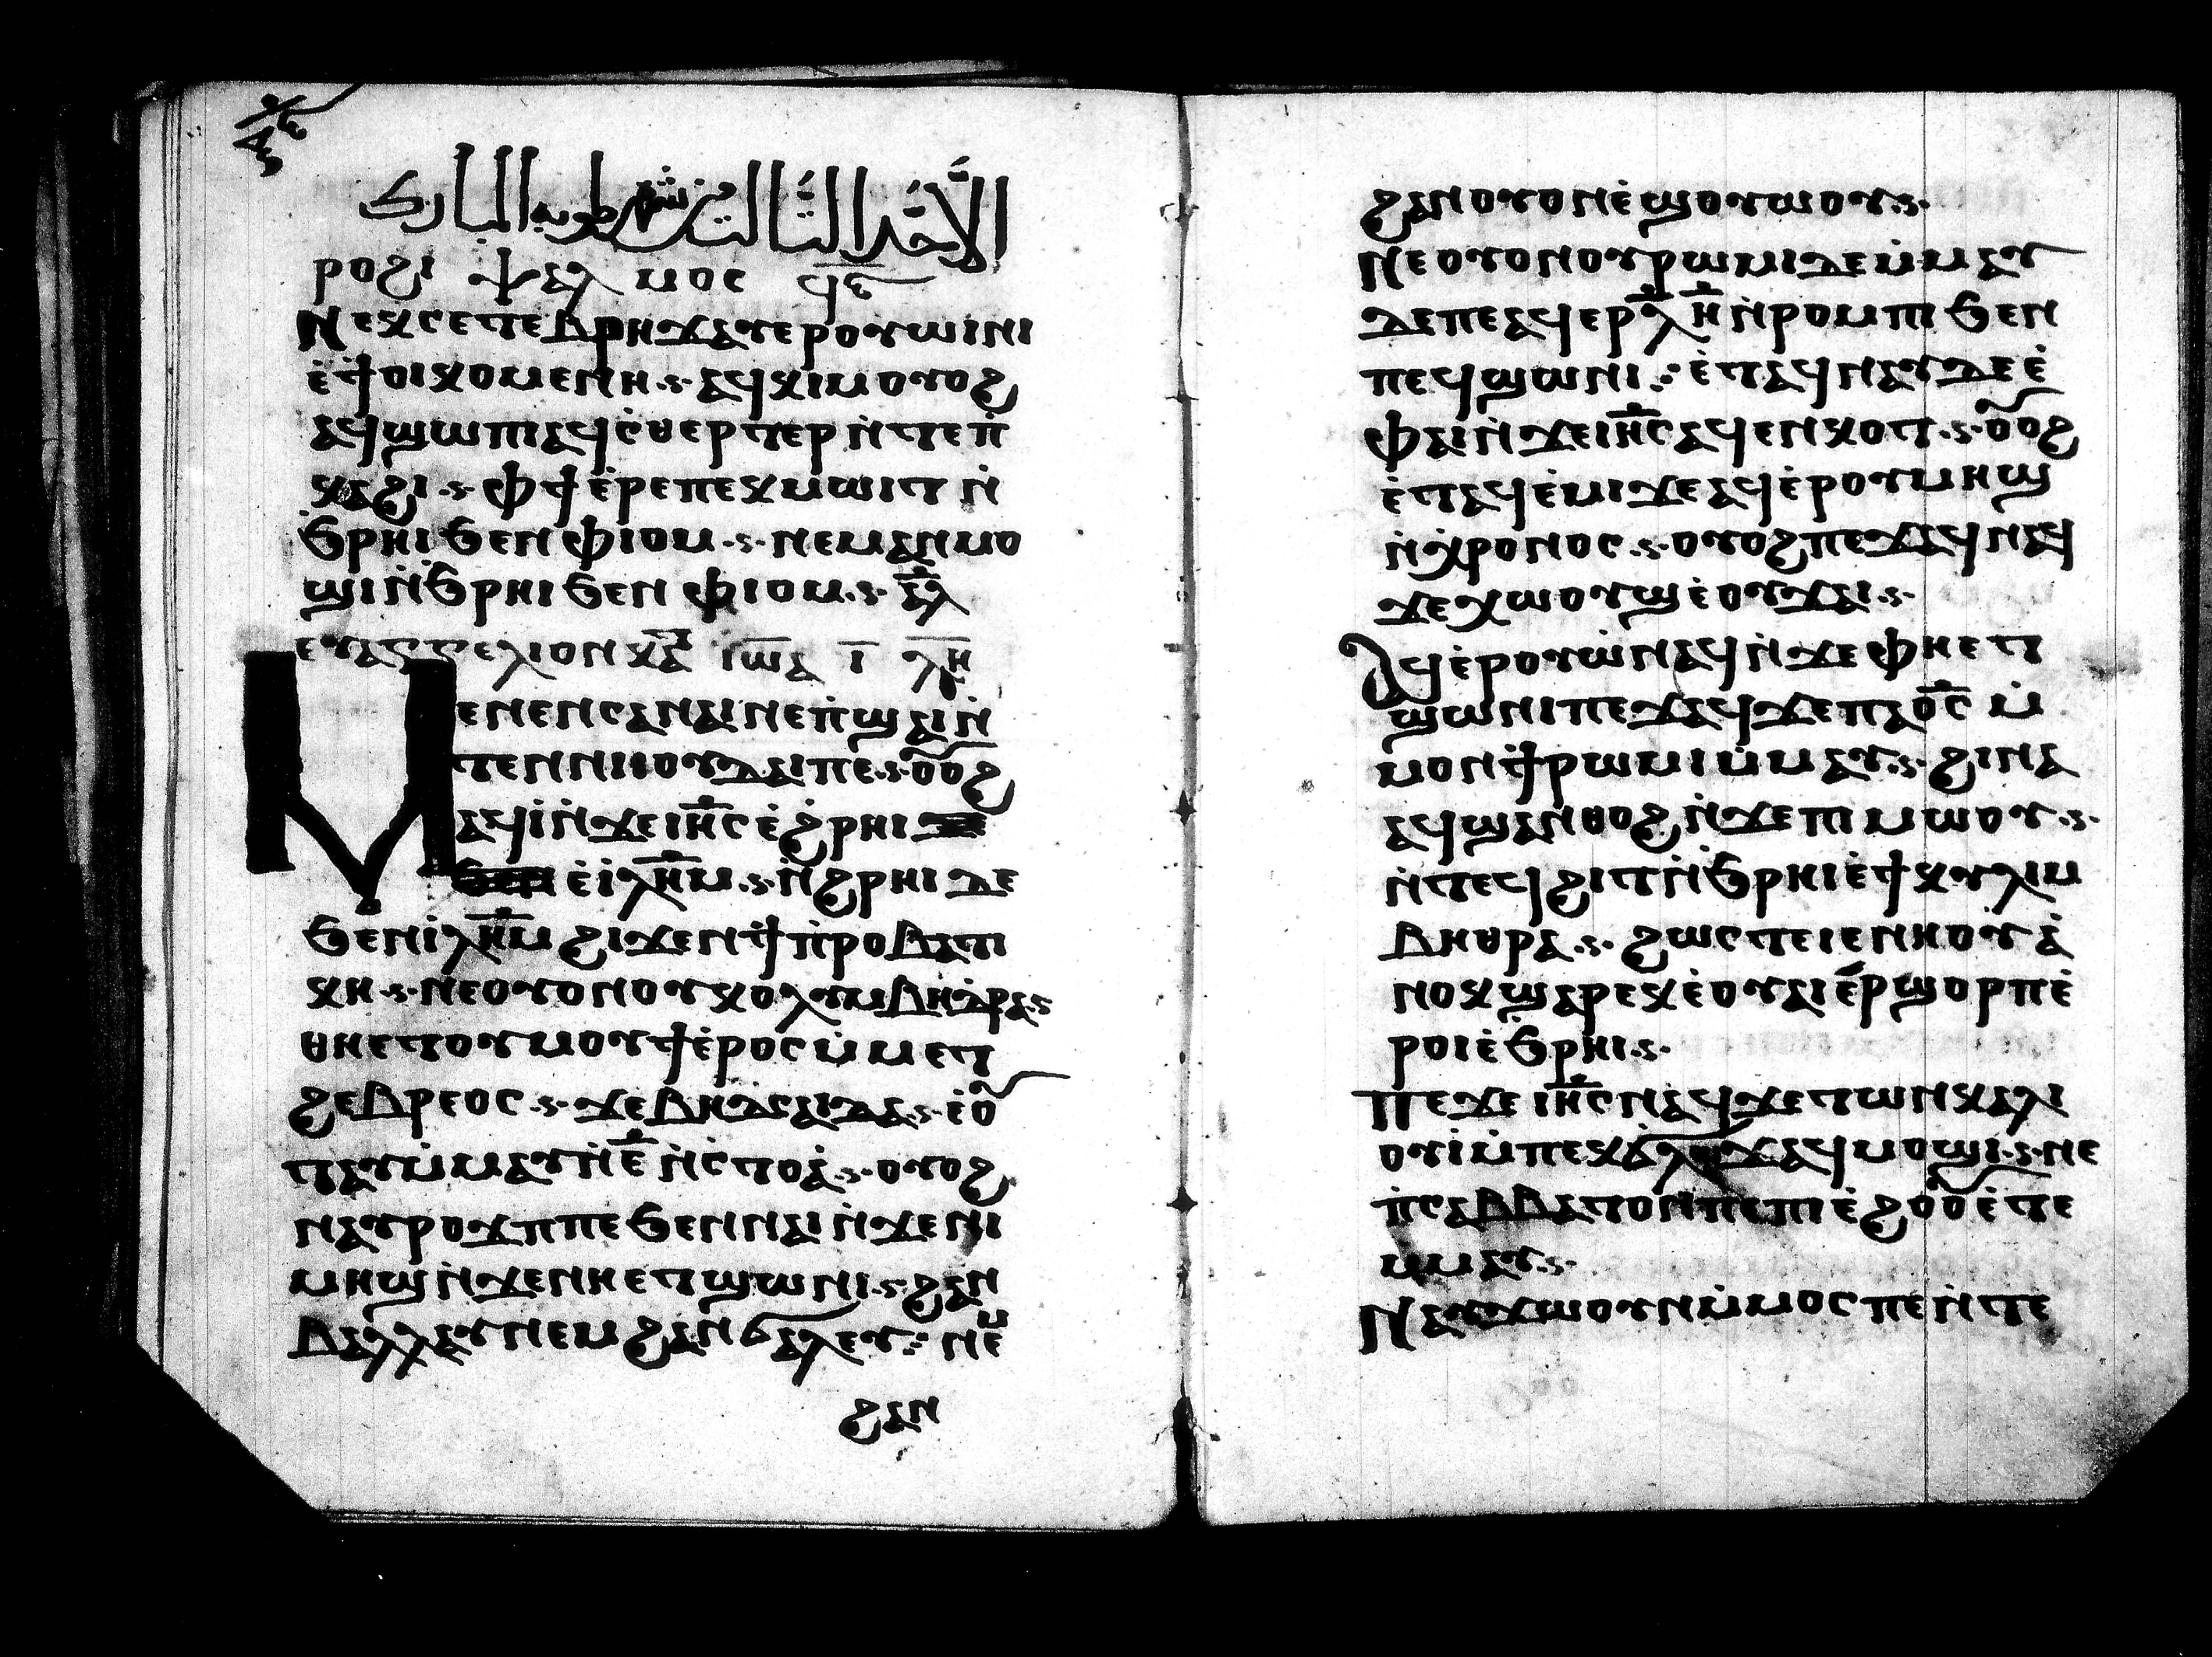 الأحد الثالث من شهر طوبه المبارك
ⲣⲟϩⲓ ⲯⲁⲗⲙⲟⲥ ϥ̅ⲋ̅
Ⲛⲉⲕⲥⲉⲧⲉⲃⲣⲏϫⲁⲩⲉⲣⲟⲩⲱⲓⲛⲓ
ⲉ̇ϯⲟⲓⲕⲟⲩⲙⲉⲛⲏ ⲁϥⲕⲓⲙ ⲟⲩⲟϩ
ⲁϥϣⲱⲡⲓ ⲁϥⲥ̇ⲑⲉⲣⲧⲉⲣ ⲛ̇ⲧⲉⲡ̇
ⲕⲁϩⲓ ⲫϯ ⲉ̇ⲣⲉⲡⲉⲕⲙⲱⲓⲧ ⲛ̇
ϧⲣⲏⲓ ϧⲉⲛ ⲫⲓⲟⲙ ⲛⲉⲙⲁⲛⲙⲟ
ϣⲓ ⲛ̇ϧⲣⲏⲓ ϧⲉⲛ ⲫⲓⲟⲙ ⲁ̅ⲗ̅
ⲉⲩⲁⲅⲅⲉⲗⲓⲟⲛ ⲕⲁ̅ ⲓⲱ̅ⲁ ⲓ̅ ⲗ̅ⲏ̅
Ⲙⲉⲛⲉⲛⲥⲁⲛⲁⲓ ⲛⲉⲡ̇ϣⲁⲓ ⲛ̇
ⲧⲉⲛⲛⲓⲓⲟⲩⲇⲁⲓⲡⲉ ⲟⲩⲟϩ
ⲁϥⲓ̇ ⲛ̇ϫⲉⲓⲏ̅ⲥ ⲉ̇ϩ̇ⲣⲏⲓ
ⲉ̇ⲓⲗⲏ̅ⲙ ⲛ̇ϩⲣⲏⲓ ⲇⲉ
ϧⲉⲛⲓ̇ⲗⲏ̅ⲙ ϩⲓϫⲉⲛϯⲡ̇ⲣⲟⲃⲁⲧⲓ
ⲕⲏ ⲛⲉⲟⲩⲟⲛⲟⲩⲕⲟⲗⲩⲙⲃⲏⲑⲣⲁ
ⲑⲏⲉⲧⲟⲩⲙⲟⲩϯⲉ̇ⲣⲟⲥ ⲙ̇ⲙⲉⲧ
ϩⲉⲃⲣⲉⲟⲥ ϫⲉⲃⲏⲇⲥⲁⲓⲇⲁ ⲉ̇ⲟⲩ
ⲧⲁⲩⲙ̇ⲙⲁⲩⲛ̇ⲉ̅ ⲛ̇ⲥ̇ⲧⲟⲁ̇ ⲟⲩⲟϩ
ⲛⲁⲩⲣⲟϫⲡⲡⲉ ϧⲉⲛⲛⲁⲓ ⲛ̇ϫⲉⲛⲓ
ⲙⲏϣ ⲛ̇ϫⲉⲛⲏⲉⲧϣⲱⲛⲓ ϩⲁⲛ
ⲃⲁⲗⲗⲁⲩ ⲛⲉⲙ ϩⲁⲛϭⲁⲗⲉⲩ ⲛⲉⲙ
ϩⲁⲛ
ϩⲁⲛⲟⲩⲟⲛⲉ̇ϣⲟⲩⲱⲟⲩ
Ⲛⲉⲟⲩⲟⲛⲟⲩⲣⲱⲙⲓⲇⲉⲙ̇ⲙⲁⲩ
ⲇⲉⲡⲉⲁϥⲉⲣⲗ̅ⲏ̅ ⲛ̇ⲣⲟⲙⲡⲓ ϧⲉⲛ
ⲡⲉϥϣⲱⲛⲓ ⲉ̇ⲧⲁϥⲛⲁⲩⲇⲉ ⲉ̇
ⲫⲁⲓ ⲛ̇ϫⲉⲓⲏ̅ⲥ ⲁϥⲉⲛⲕⲟⲧ ⲟⲩⲟϩ
ⲉ̇ⲧⲁϥⲉ̇ⲙⲓϫⲉⲁϥⲉ̇ⲣⲟⲩⲙⲏϣ
ⲛ̇ⲭⲣⲟⲛⲟⲥ ⲟⲩⲟϩⲡⲉϫⲁϥⲛⲁϥ
ϫⲉⲭⲱⲟⲩϣⲉ̇ⲟⲩϫⲁⲓ
Ⲁϥⲉ̇ⲣⲟⲩⲱ̇ⲛⲁϥ ⲛ̇ϫⲉⲫⲏⲉⲧ
ϣⲱⲛⲓⲡⲉϫⲁϥϫⲉⲡⲁⲟ̅ⲥ ⲙ̇
ⲙⲟⲛϯⲣⲱⲙⲓⲙ̇ⲙⲁⲩ ϩⲓⲛⲁ
ⲁϥϣⲁⲛⲑⲟϩ ⲛ̇ϫⲉⲡⲓⲙⲱⲟⲩ
ⲛ̇ⲧⲉϥϩⲓⲧ ⲛ̇ϧⲣⲏⲓⲉ̇ϯⲕⲩⲗⲓⲙ
ⲃⲏⲑⲣⲁ ϩⲱⲥⲧⲉⲓⲉⲛⲏⲟⲩ ⲁ̇
ⲛⲟⲕϣⲁⲣⲉⲕⲉ̇ⲟⲩⲁⲓⲉ̇ⲣϣⲟⲣⲡⲉ̇
ⲣⲟⲓⲉ̇ϧⲣⲏⲓ
Ⲡⲉϫⲉ ⲓⲏ̅ⲥ ⲛⲁϥϫⲉⲧⲱⲛⲕⲁⲗ
ⲟⲩⲓ̇ⲙ̇ⲡⲉⲕϭ̇ⲗⲟϫⲁϥⲙⲟϣⲓ ⲛⲉ
ⲡ̇ⲥⲁⲃⲃⲁⲧⲟⲛⲡⲉⲡⲓⲉ̇ϩⲟⲟⲩⲉ̇ⲧⲉ
ⲙⲙⲁⲩ
Ⲛⲁⲩϫⲱⲟⲩⲛⲙ̇ⲙⲟⲥ ⲡⲉ ⲛ̇ⲧⲉ